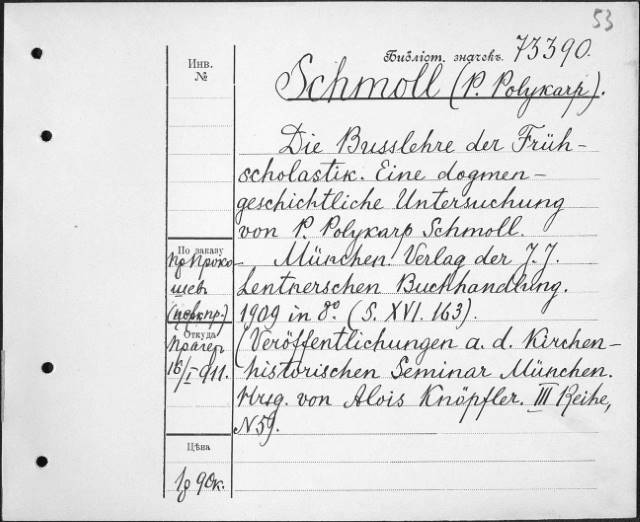 53
Библіот. значекъ. 73390.
Инв.
№
Schmoll (P. Polykarp).
Die Busslehre der Früh-
scholastik. Eine dogmen-
geschichtliche Untersuchung
von P. Polykarp Schmoll.
München. Verlag der J. J.
Lentnerschen Buchhandlung.
1909 in 8° (S. XVI. 163).
(Veröffentlichungen a. d. Kirchen-
historischen Seminar München.
Hrsg. von Alois Knöpfler. III Reihe,
N 5).
По заказу
Проко-
шев
Откуда
Прагер
16/I 911.
Цѣна
1р 90к.